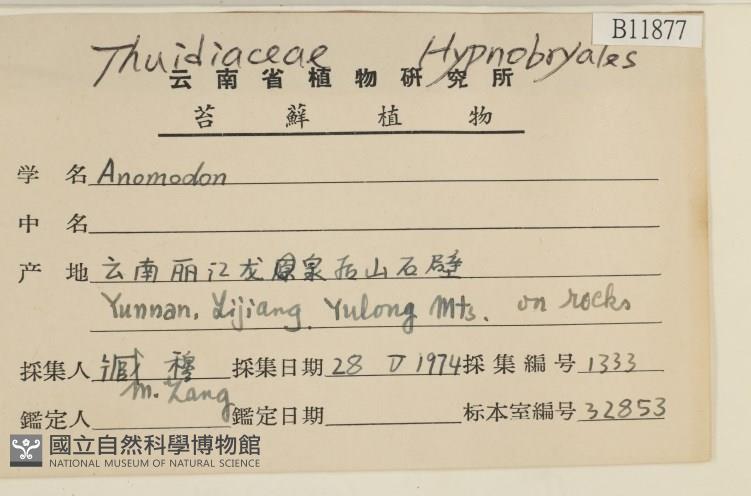 B11877
Thuidiaceae Hypnobryales
云南省植物研究所
苔藓植物
学名 Anomodon
中名
产地 云南丽江龙泉后山石壁
Yunnan, Lijiang. Yulong Mts. on rocks
採集人 臧穆 採集日期 28 V 1974 採集編号 1333
M. Zang
鑑定人 鑑定日期 标本室編号 32853
國立自然科學博物館
NATIONAL MUSEUM OF NATURAL SCIENCE